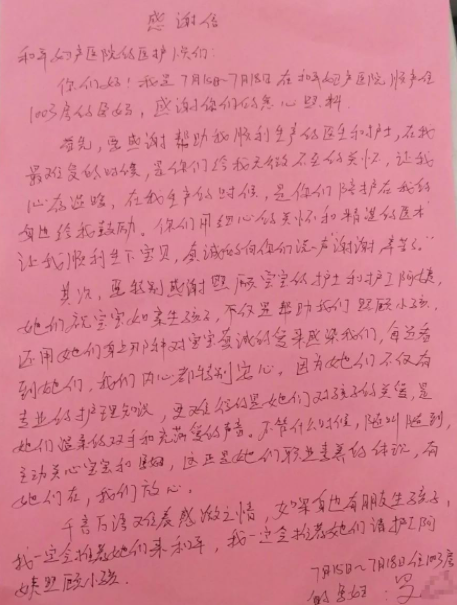 感谢信
和平妇产医院的医护人员们:
你们好!我是7月15日~7月18日在和平妇产医院顺产住
1003房的宝妈,感谢你们的悉心照料.
首先,要感谢帮助我顺利生产的医生和护士,在我
最难受的时候,是你们给我无微不至的关怀,让我
心存温暖,在我生产的时候,是你们陪护在我的
身边给我鼓励。你们用细心的关怀和精湛的医术
让我顺利生下宝贝,真诚的向你们说一声"谢谢,辛苦了"
其次,要特别感谢照顾宝宝的护士和护工阿姨,
她们视宝宝如亲生孩子,不仅是帮助我们照顾小孩.
还用她们身上那种对宝宝真诚的爱来感染我们,每次看
到她们,我们内心都特别安心。因为她们不仅有
专业的护理知识,更难得的是她们对孩子的关爱,是
她们温柔的双手和充满爱的声音。不管什么时候,随叫随到,
主动关心宝宝和宝妈,这正是她们职业素养的体现,有
她们在,我们放心.
千言万语难表感激之情,如果身边有朋友生孩子,
我一定会推荐她们来和平,我一定会推荐她们请护工阿
姨照顾小孩.
7月15日~7月18日住1003房
的宝妈: